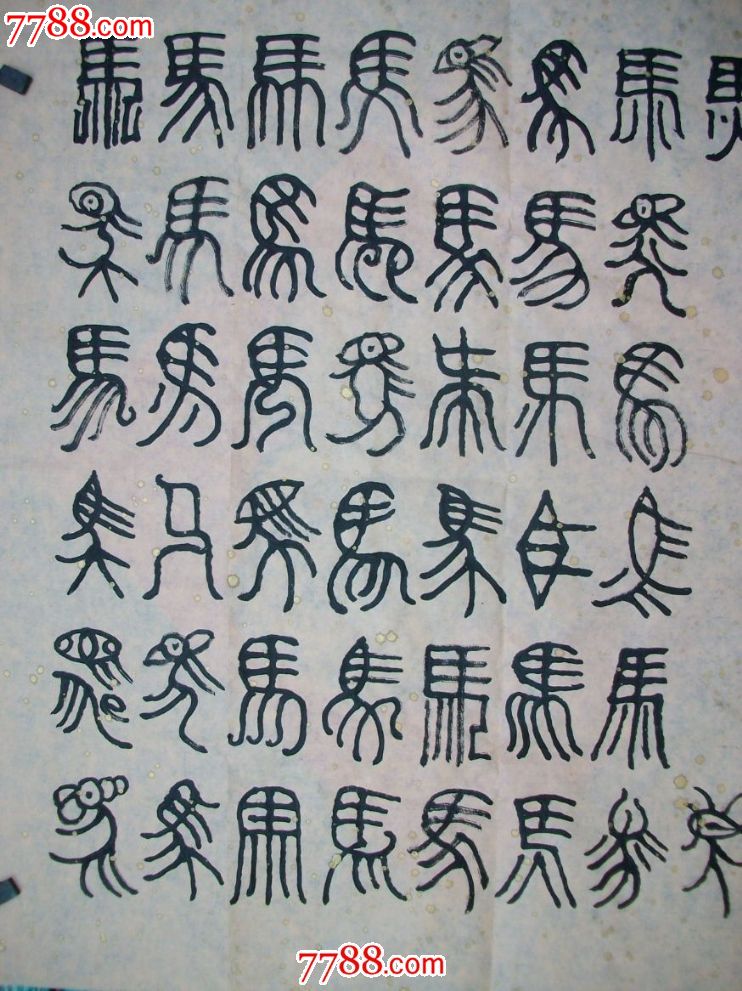 7788.com
馬馬馬馬馬馬馬
馬馬馬馬馬馬馬
馬馬馬馬馬馬馬
馬馬馬馬馬馬馬
馬馬馬馬馬馬馬
馬馬馬馬馬馬馬
7788.com